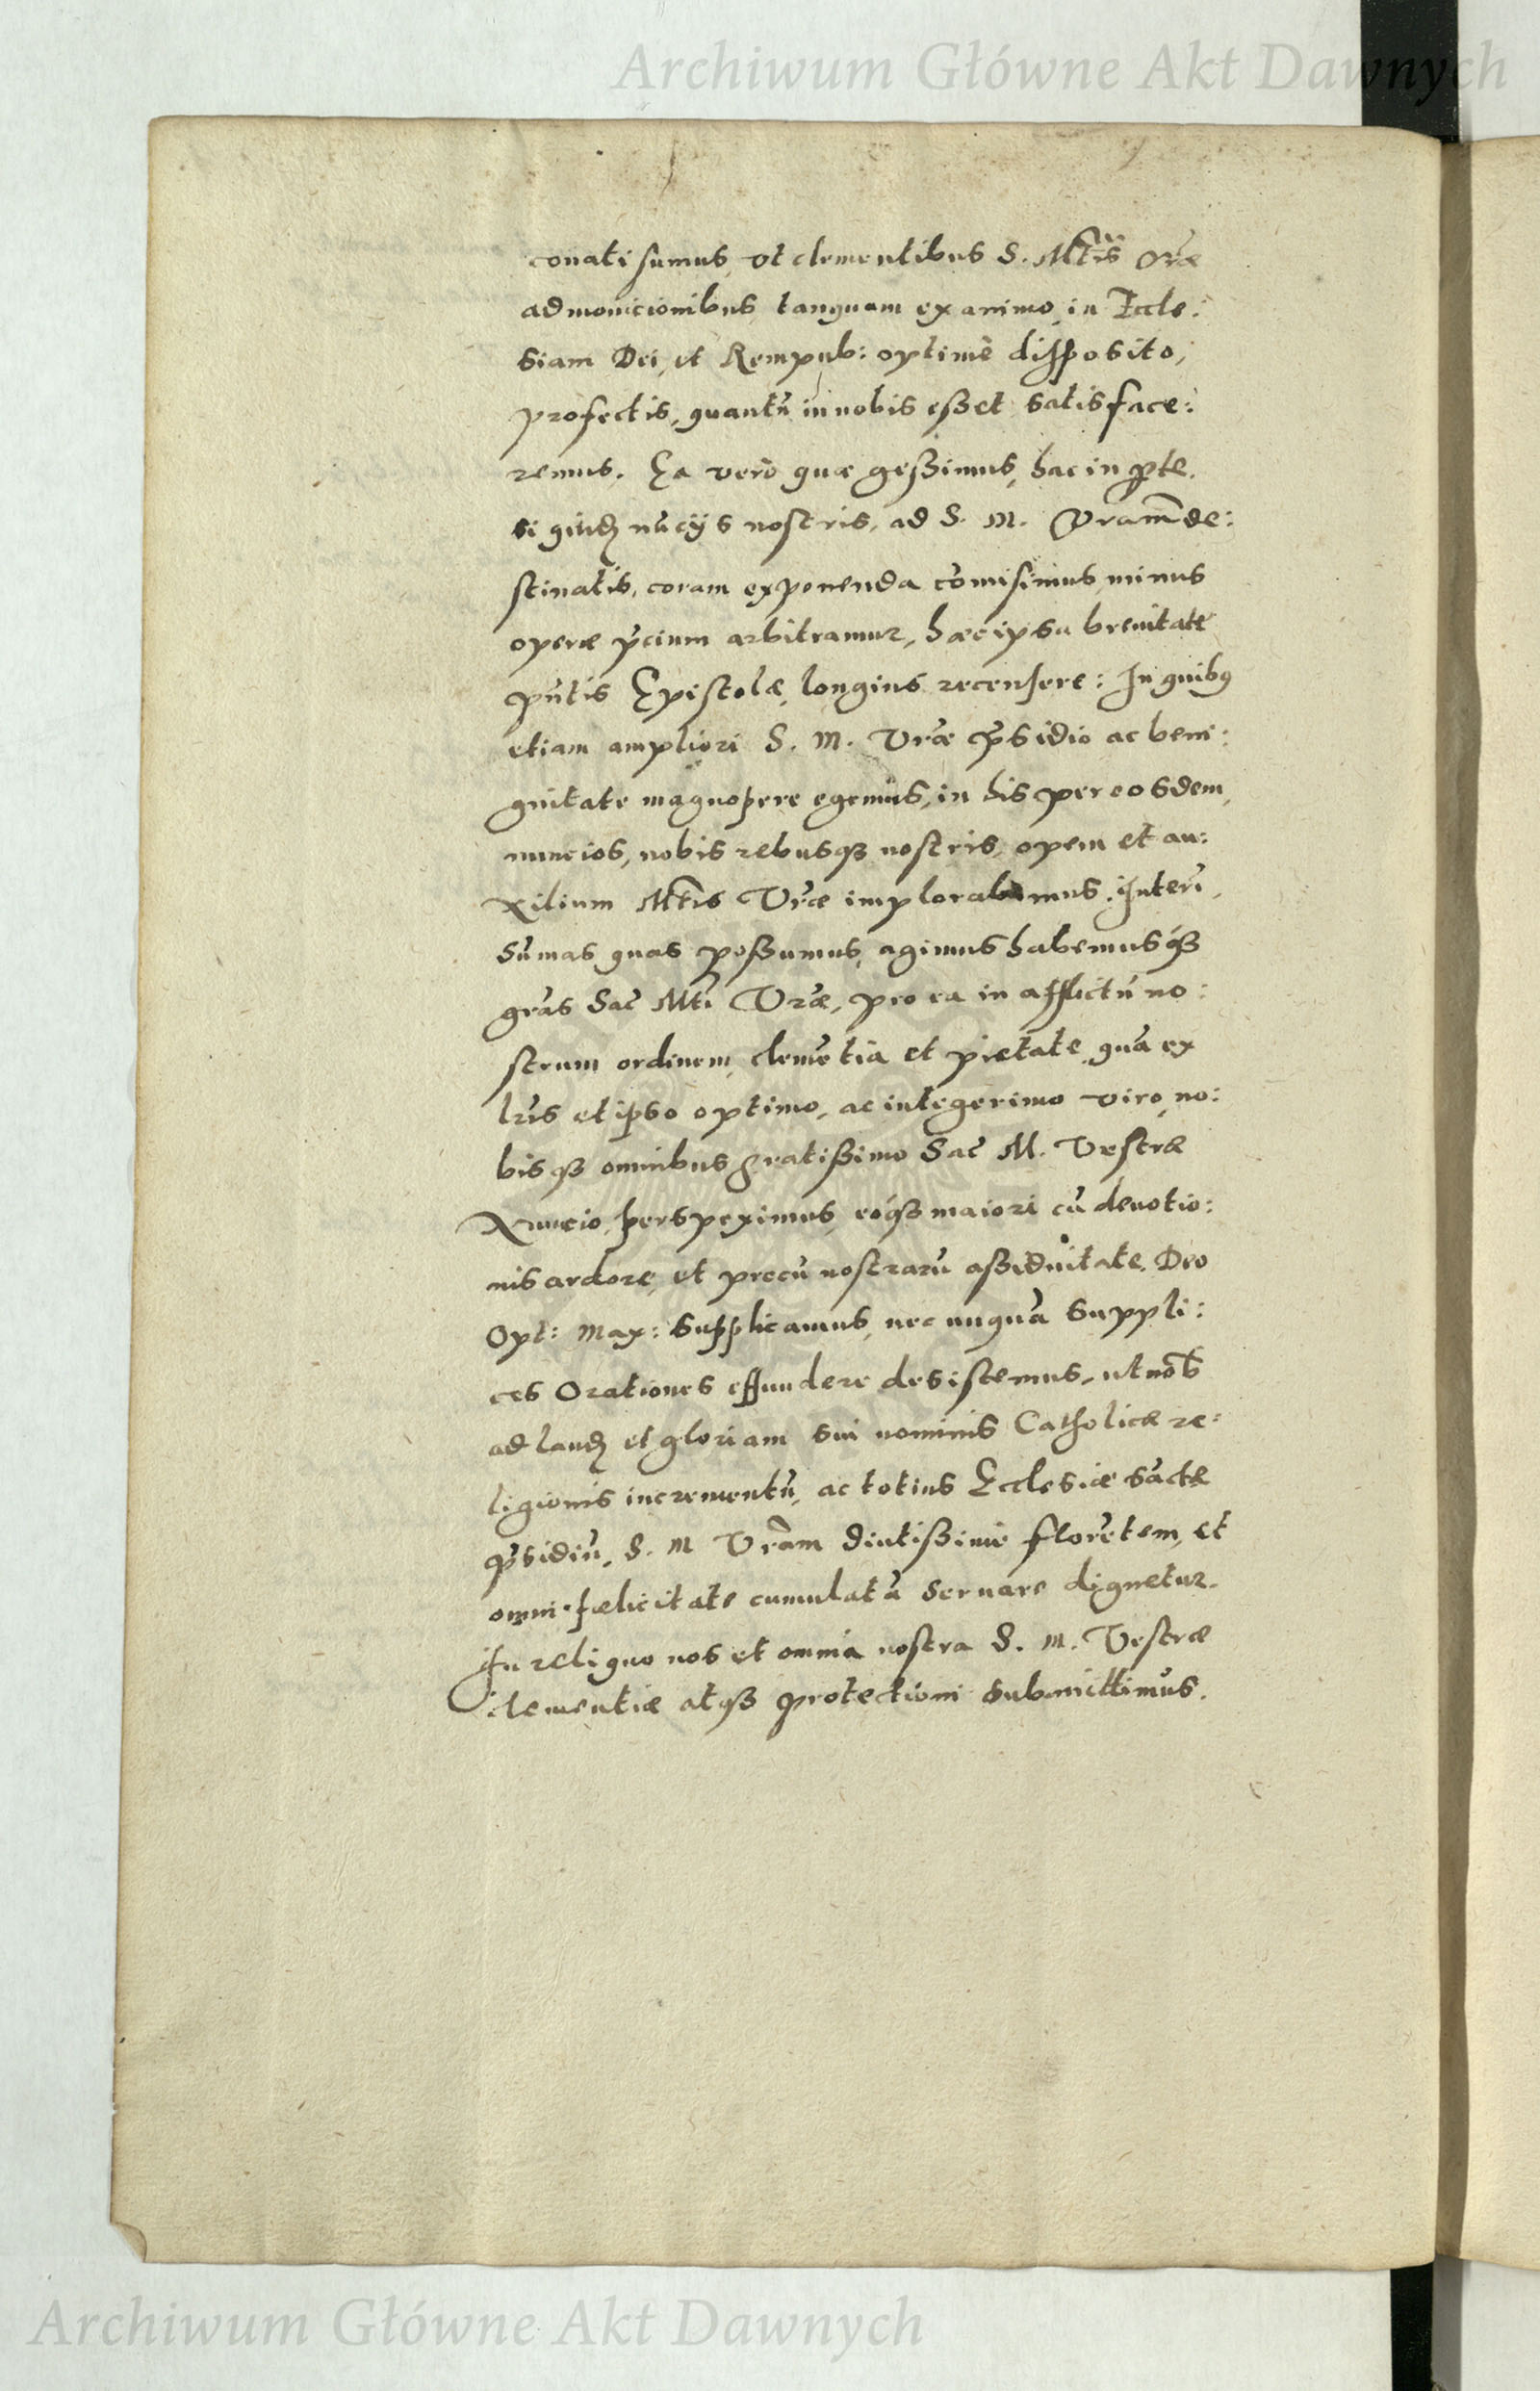 Archiwum Główne Akt Dawnych
conati sumus, vt clementibus S. Mtis Vrae
admonicionibus, tanquam ex animo, in Eccle:
siam Dei, et Rempub: optimè disposito,
profectis, quantũ in nobis esset satisface:
remus. Ea verò quae gessimus, hac in pte.
si quid nũcijs nostris, ad S. M. Vram de:
stinatis, coram exponenda cõmisimus, minus
operae pcium arbitramur, haec ipsa breuitate
pñtis Epistolae, longius recensere: In quibus
etiam ampliori S. M. Vrae psidio ac beni:
gnitate magnopere egemus, in his per eosdem,
nuncios, nobis rebusq3 nostris, opem et au:
xilium Mtis Vrae implorabimus. Interi,
sũmas quas possumus, agimus habemusq3
gras Sac Mti Vrae, pro ea in afflictũ no:
strum ordinem, clemẽtia et pietate, quã ex
lris et ipso optimo, ac integerimo viro, no:
bisq3 omnibus gratissimo Sac M. Vestrae
Nuncio, perspeximus, eoq3 maiori cũ deuotio:
nis ardore, et precũ nostrarũ assiduitate. Deo
Opt: Max: supplicamus, nec unquã suppli:
ces Orationes effundere desistemus, ut nob
ad laudẽ et gloriam sui nominis Catholicae re:
ligionis incrementũ, ac totius Ecclesiae sãctae
psidiũ, S. M Vram diutissimè florẽtem, et
omni foelicitate cumulatã seruare dignetur.
In reliquo nos et omnia nostra S. M. Vestrae
clementiae atq3 protectioni submittimus.
Archiwum Główne Akt Dawnych